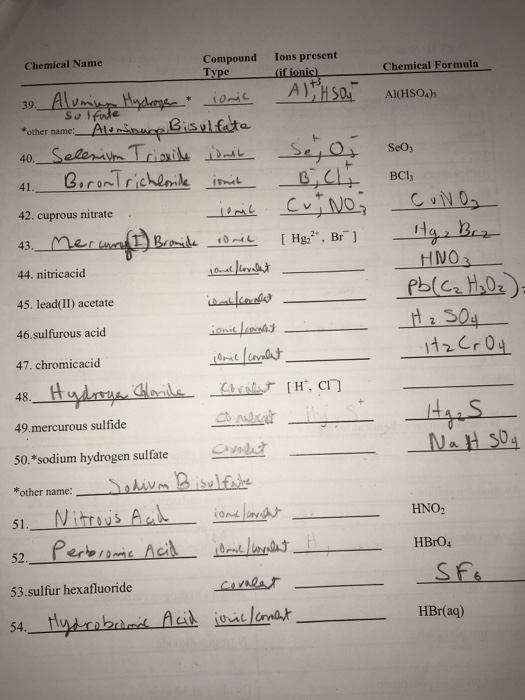 Chemical Name Compound Type Ions present (if ionic) Chemical Formula
39. Aluminum Hydrogen * ionic Al+3, HSO4- Al(HSO4)3
Sulfate
*other name: Aluminum Bisulfate
40. Selenium Trioxide ionic Se+, O3- SeO3
41. Boron Trichloride ionic B, Cl3+ BCl3
42. cuprous nitrate ionic Cu+, NO3- CuNO3
43. Mercury(I) Bromide ionic [ Hg2 2+, Br- ] Hg2 Br2
44. nitricacid ionic/covalent HNO3
45. lead(II) acetate ionic/covalent Pb(C2H3O2)2
46.sulfurous acid ionic/covalent H2SO4
47. chromicacid ionic/covalent H2CrO4
48. Hydrogen Chloride Covalent [H+, Cl-]
49.mercurous sulfide Covalent Hg2S
50.*sodium hydrogen sulfate Covalent NaHSO4
*other name: Sodium Bisulfate
51. Nitrous Acid ionic/covalent HNO2
52. Perbromic Acid ionic/covalent H HBrO4
53.sulfur hexafluoride Covalent SF6
54. Hydrobromic Acid ionic/covalent HBr(aq)